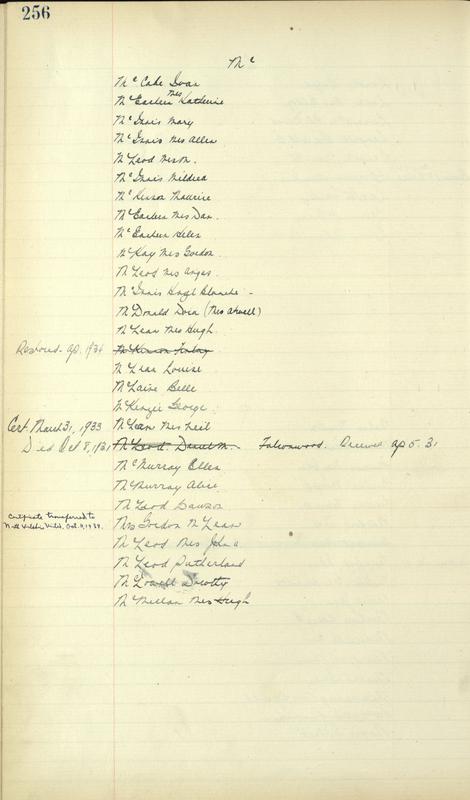 256
Mc
Mc Cabe
Mc Eachern Mrs Katherine
Mc Innis Mary
Mc Innis Mrs Allen
Mc Leod
Mc Innis Mildred
Mc Kinnon Maurice
Mc Eachern Mrs Dan.
Mc Eachern Helen
Mc Kay Mrs Gordon.
Mc Leod Mrs Angus.
Mc Innis Hazel Blanche
Mc Donald Dora (Mrs Atwell)
Mc Lean Mrs Hugh.
Removed Ap. 1934 Mc Kinnon Finlay
Mc Lean Louise
Mc Laine Belle
Mc Kenzie George
Cert. March 31, 1933 Mc Lean Mrs Neil
Died Oct 8, 1931 Mc Leod Daniel M. Falconwood. Received Ap 5. 31
Mc Murray Ellen
Mc Murray Alice.
Mc Leod Dawson
Certificate transferred to
Oct. 9, 1939. Mrs Gordon Mc Lean
Mc Leod Mrs John A.
Mc Leod Sutherland
Mc Dorothy
Mc Millan Mrs Hugh